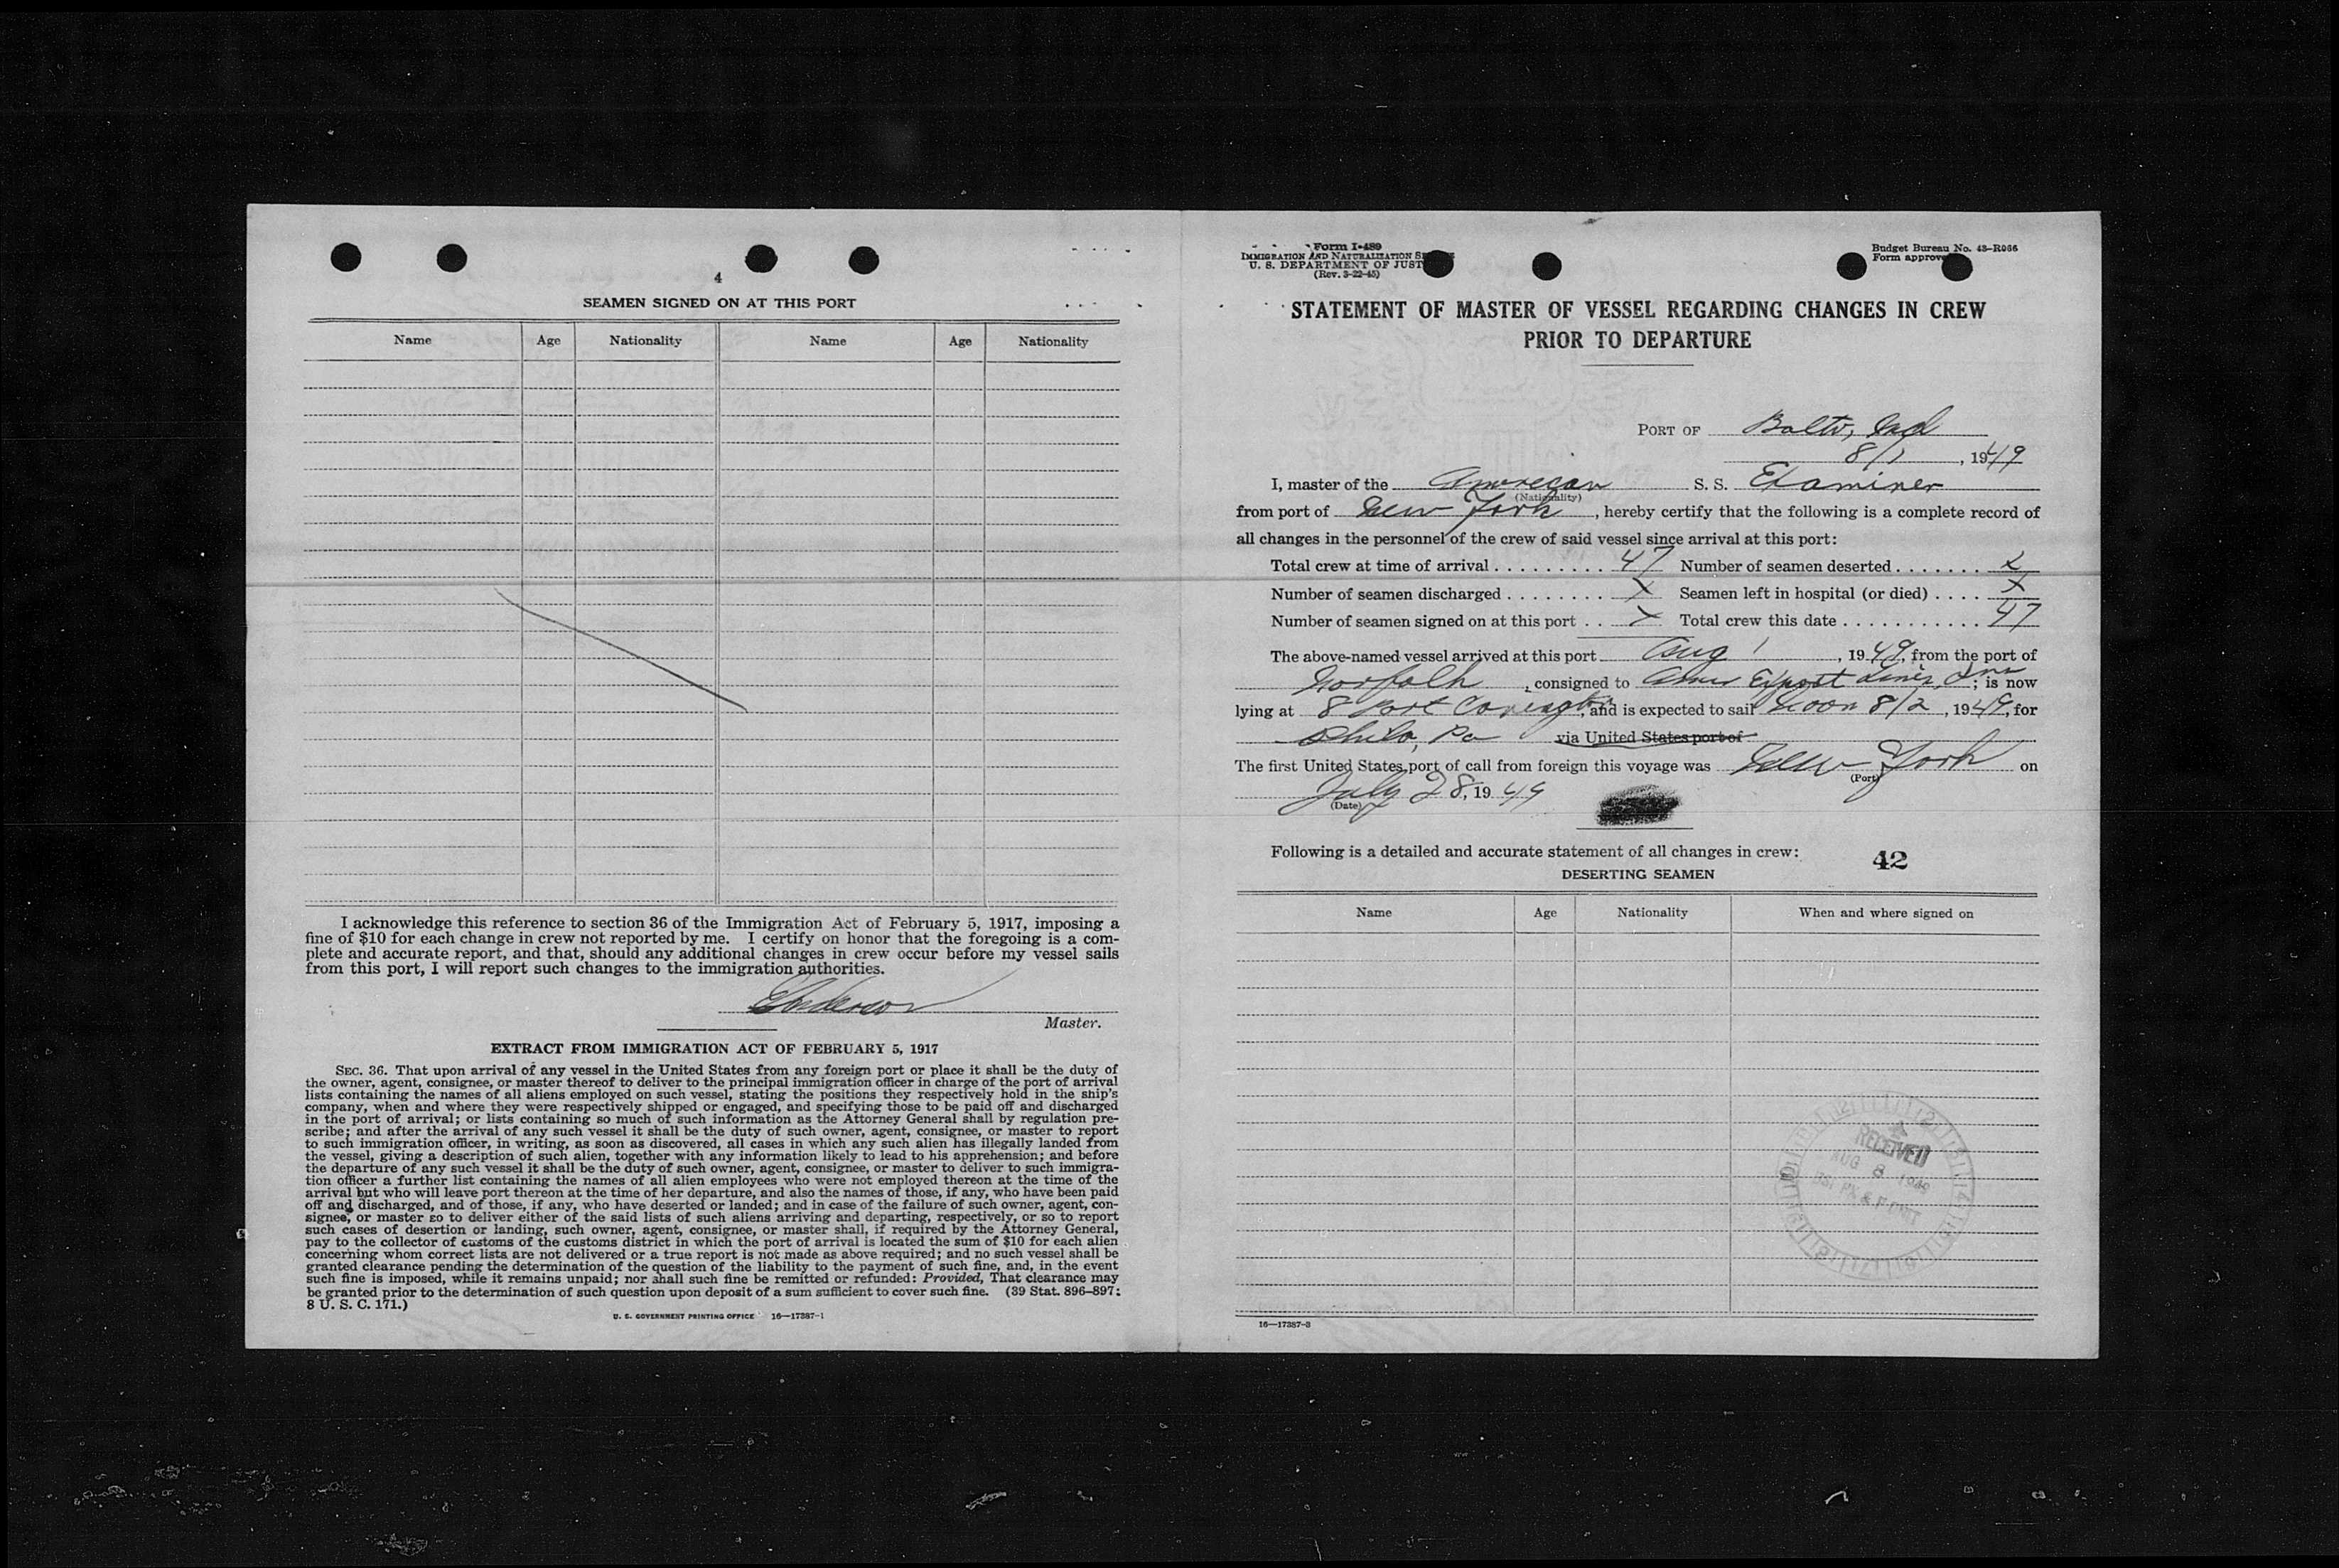 4
SEAMEN SIGNED ON AT THIS PORT
Name Age Nationality Name Age Nationality
I acknowledge this reference to section 36 of the Immigration Act of February 5, 1917, imposing a
fine of $10 for each change in crew not reported by me. I certify on honor that the foregoing is a com-
plete and accurate report, and that, should any additional changes in crew occur before my vessel sails
from this port, I will report such changes to the immigration authorities.
Anderson
Master.
EXTRACT FROM IMMIGRATION ACT OF FEBRUARY 5, 1917
SEC. 36. That upon arrival of any vessel in the United States from any foreign port or place it shall be the duty of
the owner, agent, consignee, or master thereof to deliver to the principal immigration officer in charge of the port of arrival
lists containing the names of all aliens employed on such vessel, stating the positions they respectively hold in the ship's
company, when and where they were respectively shipped or engaged, and specifying those to be paid off and discharged
in the port of arrival; or lists containing so much of such information as the Attorney General shall by regulation pre-
scribe; and after the arrival of any such vessel it shall be the duty of such owner, agent, consignee, or master to report
to such immigration officer, in writing, as soon as discovered, all cases in which any such alien has illegally landed from
the vessel, giving a description of such alien, together with any information likely to lead to his apprehension; and before
the departure of any such vessel it shall be the duty of such owner, agent, consignee, or master to deliver to such immigra-
tion officer a further list containing the names of all alien employees who were not employed thereon at the time of the
arrival but who will leave port thereon at the time of her departure, and also the names of those, if any, who have been paid
off and discharged, and of those, if any, who have deserted or landed; and in case of the failure of such owner, agent, con-
signee, or master so to deliver either of the said lists of such aliens arriving and departing, respectively, or so to report
such cases of desertion or landing, such owner, agent, consignee, or master shall, if required by the Attorney General,
pay to the collector of customs of the customs district in which the port of arrival is located the sum of $10 for each alien
concerning whom correct lists are not delivered or a true report is not made as above required; and no such vessel shall be
granted clearance pending the determination of the question of the liability to the payment of such fine, and, in the event
such fine is imposed, while it remains unpaid; nor shall such fine be remitted or refunded: Provided, That clearance may
be granted prior to the determination of such question upon deposit of a sum sufficient to cover such fine. (39 Stat. 896-897;
8 U. S. C. 171.)
U. S. GOVERNMENT PRINTING OFFICE 16—17387-1
Form I-489
IMMIGRATION AND NATURALIZATION
U. S. DEPARTMENT OF JUST
(Rev. 3-22-45)
Budget Bureau No. 43-R066
Form approve
STATEMENT OF MASTER OF VESSEL REGARDING CHANGES IN CREW
PRIOR TO DEPARTURE
PORT OF Balto, Md
8/1, 1949
I, master of the American S. S. Examiner
(Nationality)
from port of New York, hereby certify that the following is a complete record of
all changes in the personnel of the crew of said vessel since arrival at this port:
Total crew at time of arrival 47 Number of seamen deserted X
Number of seamen discharged X Seamen left in hospital (or died) X
Number of seamen signed on at this port X Total crew this date 47
The above-named vessel arrived at this port Aug 1, 1949, from the port of
Norfolk, consigned to Amer Export Lines, Inc; is now
lying at 8 Port Covington, and is expected to sail Noon 8/2, 1949, for
Phila, Pa via United States port of
The first United States port of call from foreign this voyage was New York on
(Port)
July 28, 1949
(Date)
Following is a detailed and accurate statement of all changes in crew:
42
DESERTING SEAMEN
Name Age Nationality When and where signed on
RECEIVED
AUG 8 1949
16—17387-3